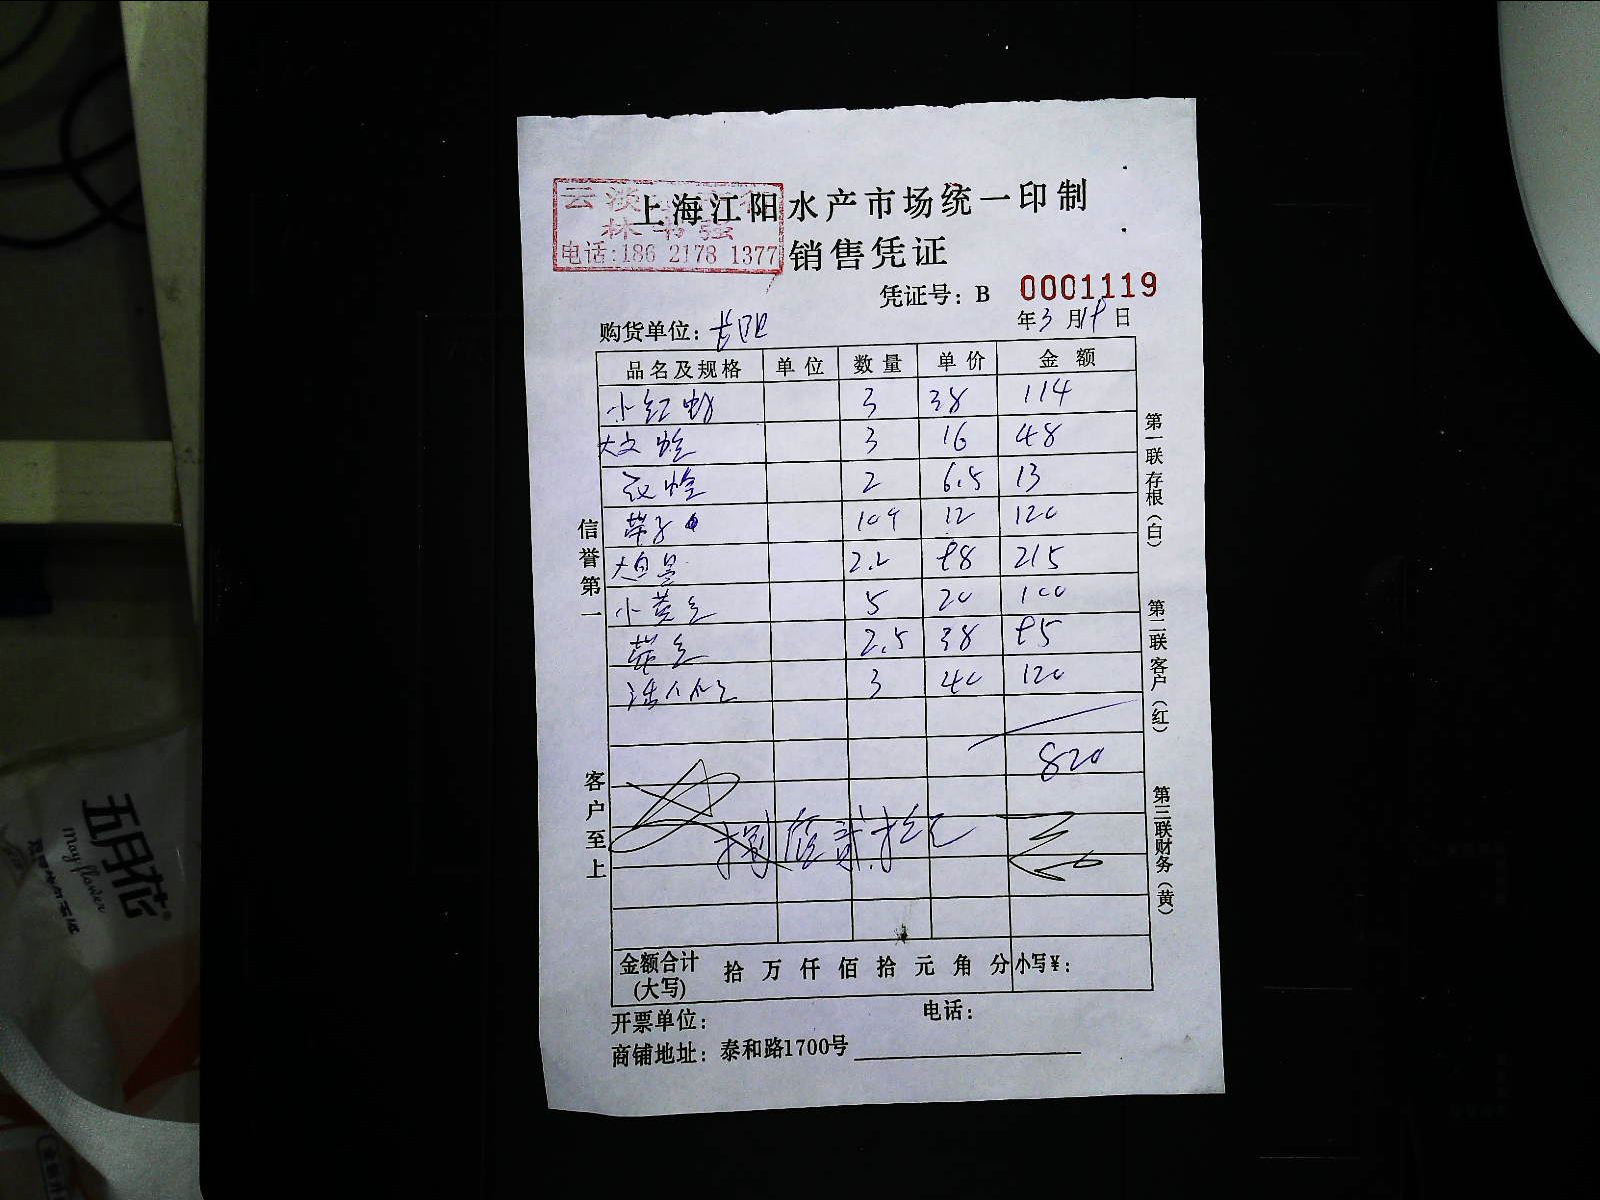 上海江阳水产市场统一印制
云淡
林书强
电话:186 2178 1377
销售凭证
凭证号: B 0001119
购货单位:
年3月19日
品名及规格 单位 数量 单价 金额
小红 3 38 114
大文蛤 3 16 48
花蛤 2 6.5 13
带子 10个 12 120
2.2 98 215
小黄鱼 5 20 100
2.5 38 95
3 40 120
820
捌佰贰拾元
金额合计(大写) 拾 万 仟 佰 拾 元 角 分 小写¥:
开票单位: 电话:
商铺地址: 泰和路1700号
信誉第一
客户至上
第一联存根(白)
第二联客户(红)
第三联财务(黄)
五月花
May flower